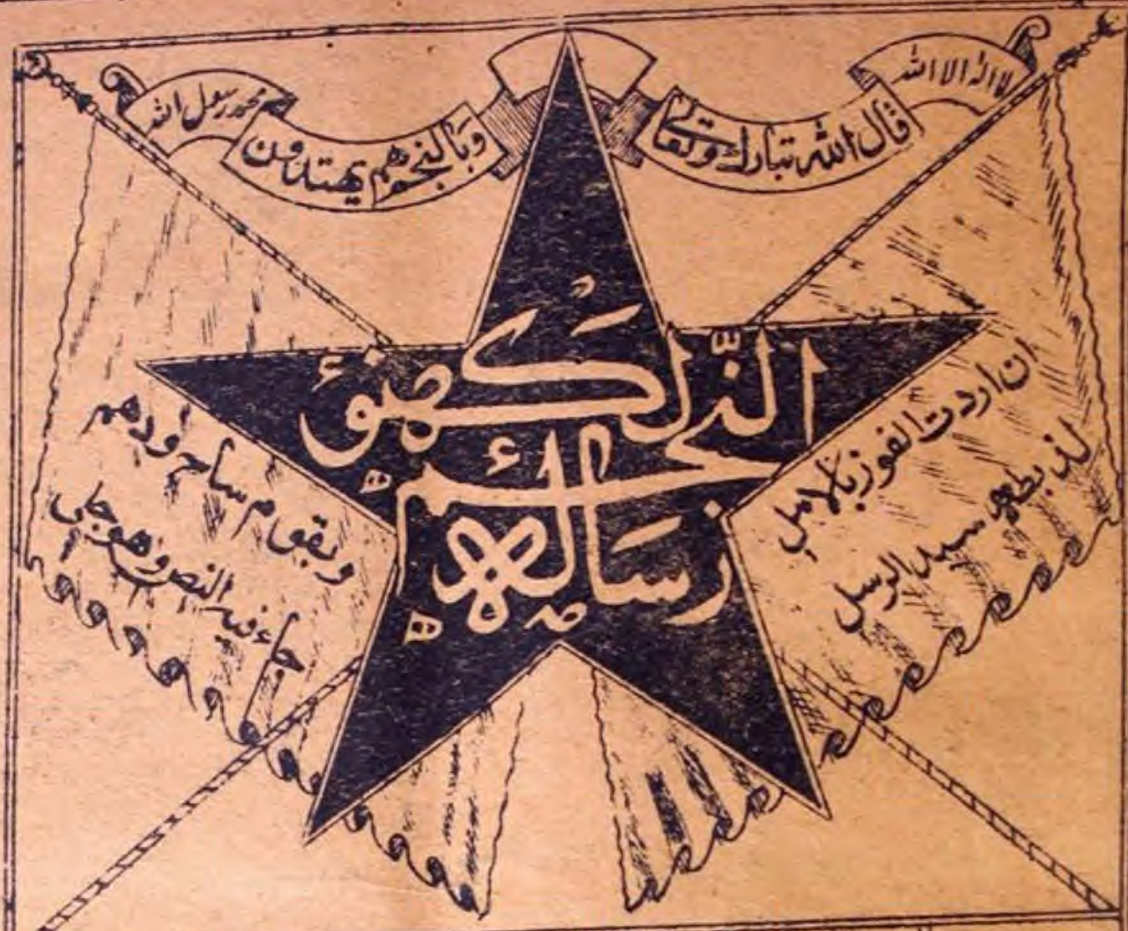 لا اله الا الله
قال الله تبارك وتعالى
وبالنجم هم يهتدون
محمد رسول الله
رسالہ
النجم لکھنؤ
ان اردت الفوز بالامل
لذ بطه سيد الرسل
وبقوم ودهم
جاء فيه النص وهو جلي